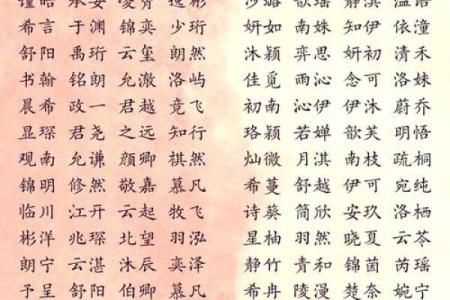 希言 于渊 锦奕 少珩 妍如 南姝 知日 依潼
舒阳 禹珩 云玺 朗然 沐颖 弈思 伊沁 清禾
书翰 铭朗 允澈 洛屿 佳觅 雨沁 念可 洛姝
晨希 政一 君越 竞飞 初南 沁伊 伊沐 蔚乔
显琛 君尧 之远 知行 珞颖 若婵 歆芙 明悟
观南 允谦 颜卿 祺然 灿微 月淇 南枝 疏桐
锦明 修然 敬嘉 慕凡 希蔓 舒越 伊可 宛纯
临川 江开 云起 牧飞 诗葵 简欣 安玖 洛栖
彬洋 兆琛 北望 羽泓 星柚 羽然 晓夏 云苓
朗宁 云湛 沐辰 奕泽 静竹 青和 锦茵 芮瑶
予呈 朗研 北卿 慕凡 希冉 陵漫 楚奈 婉宁